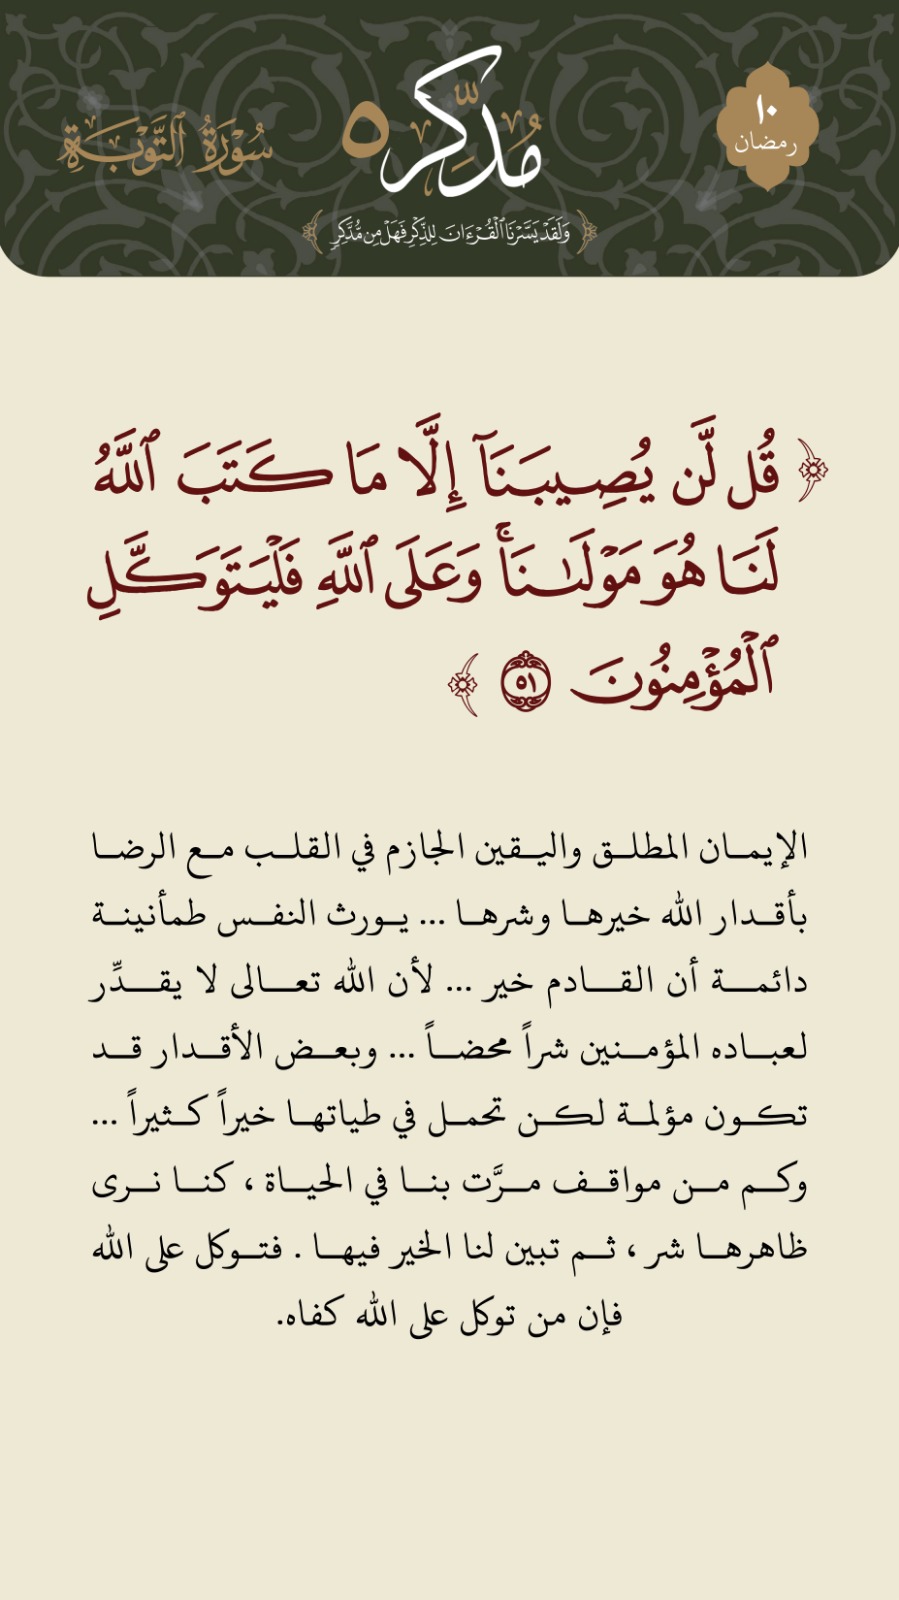 ١٠
رمضان
مُدَّكِر ٥
سُوْرَةُ ٱلتَّوْبَةِ
وَلَقَدْ يَسَّرْنَا ٱلْقُرْءَانَ لِلذِّكْرِ فَهَلْ مِن مُّدَّكِرٍ
﴿ قُل لَّن يُصِيبَنَآ إِلَّا مَا كَتَبَ ٱللَّهُ
لَنَا هُوَ مَوْلَىٰنَاۚ وَعَلَى ٱللَّهِ فَلْيَتَوَكَّلِ
ٱلْمُؤْمِنُونَ ٥١ ﴾
الإيمـان المطلـق واليـقين الجازم في القلـب مـع الرضـا
بأقـدار الله خيرهـا وشرهـا ... يـورث النفـس طمأنينـة
دائمـة أن القـادم خير ... لأن الله تعـالى لا يقـدِّر
لعبـاده المؤمـنين شراً محضـاً ... وبعـض الأقـدار قـد
تكـون مؤلمـة لكـن تحمـل في طياتهـا خيراً كـثيراً ...
وكـم مـن مواقـف مـرَّت بنـا في الحيـاة ، كنـا نـرى
ظاهرهـا شر ، ثـم تبين لنا الخير فيهـا . فتـوكل على الله
فإن من توكل على الله كفاه.